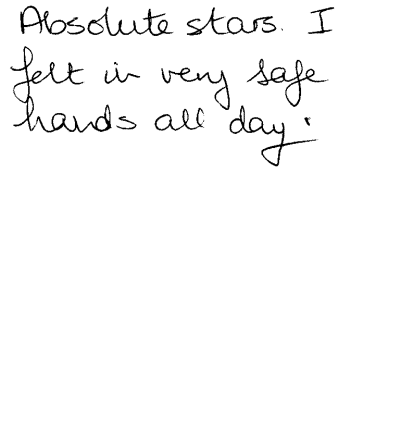 Absolute stars. I
felt in very safe
hands all day.